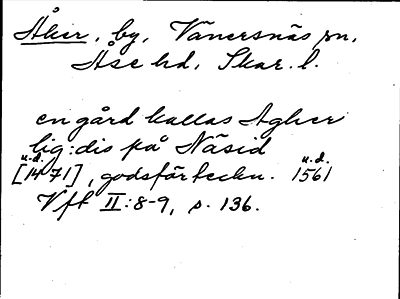 Åker, by, Vänersnäs sn,
Åse hd, Skar. l.
en gård kallas Agher
lig:dis på Näsid
u.d. u.d.
[1471], godsförteckn. 1561
Vft II:8-9, s. 136.